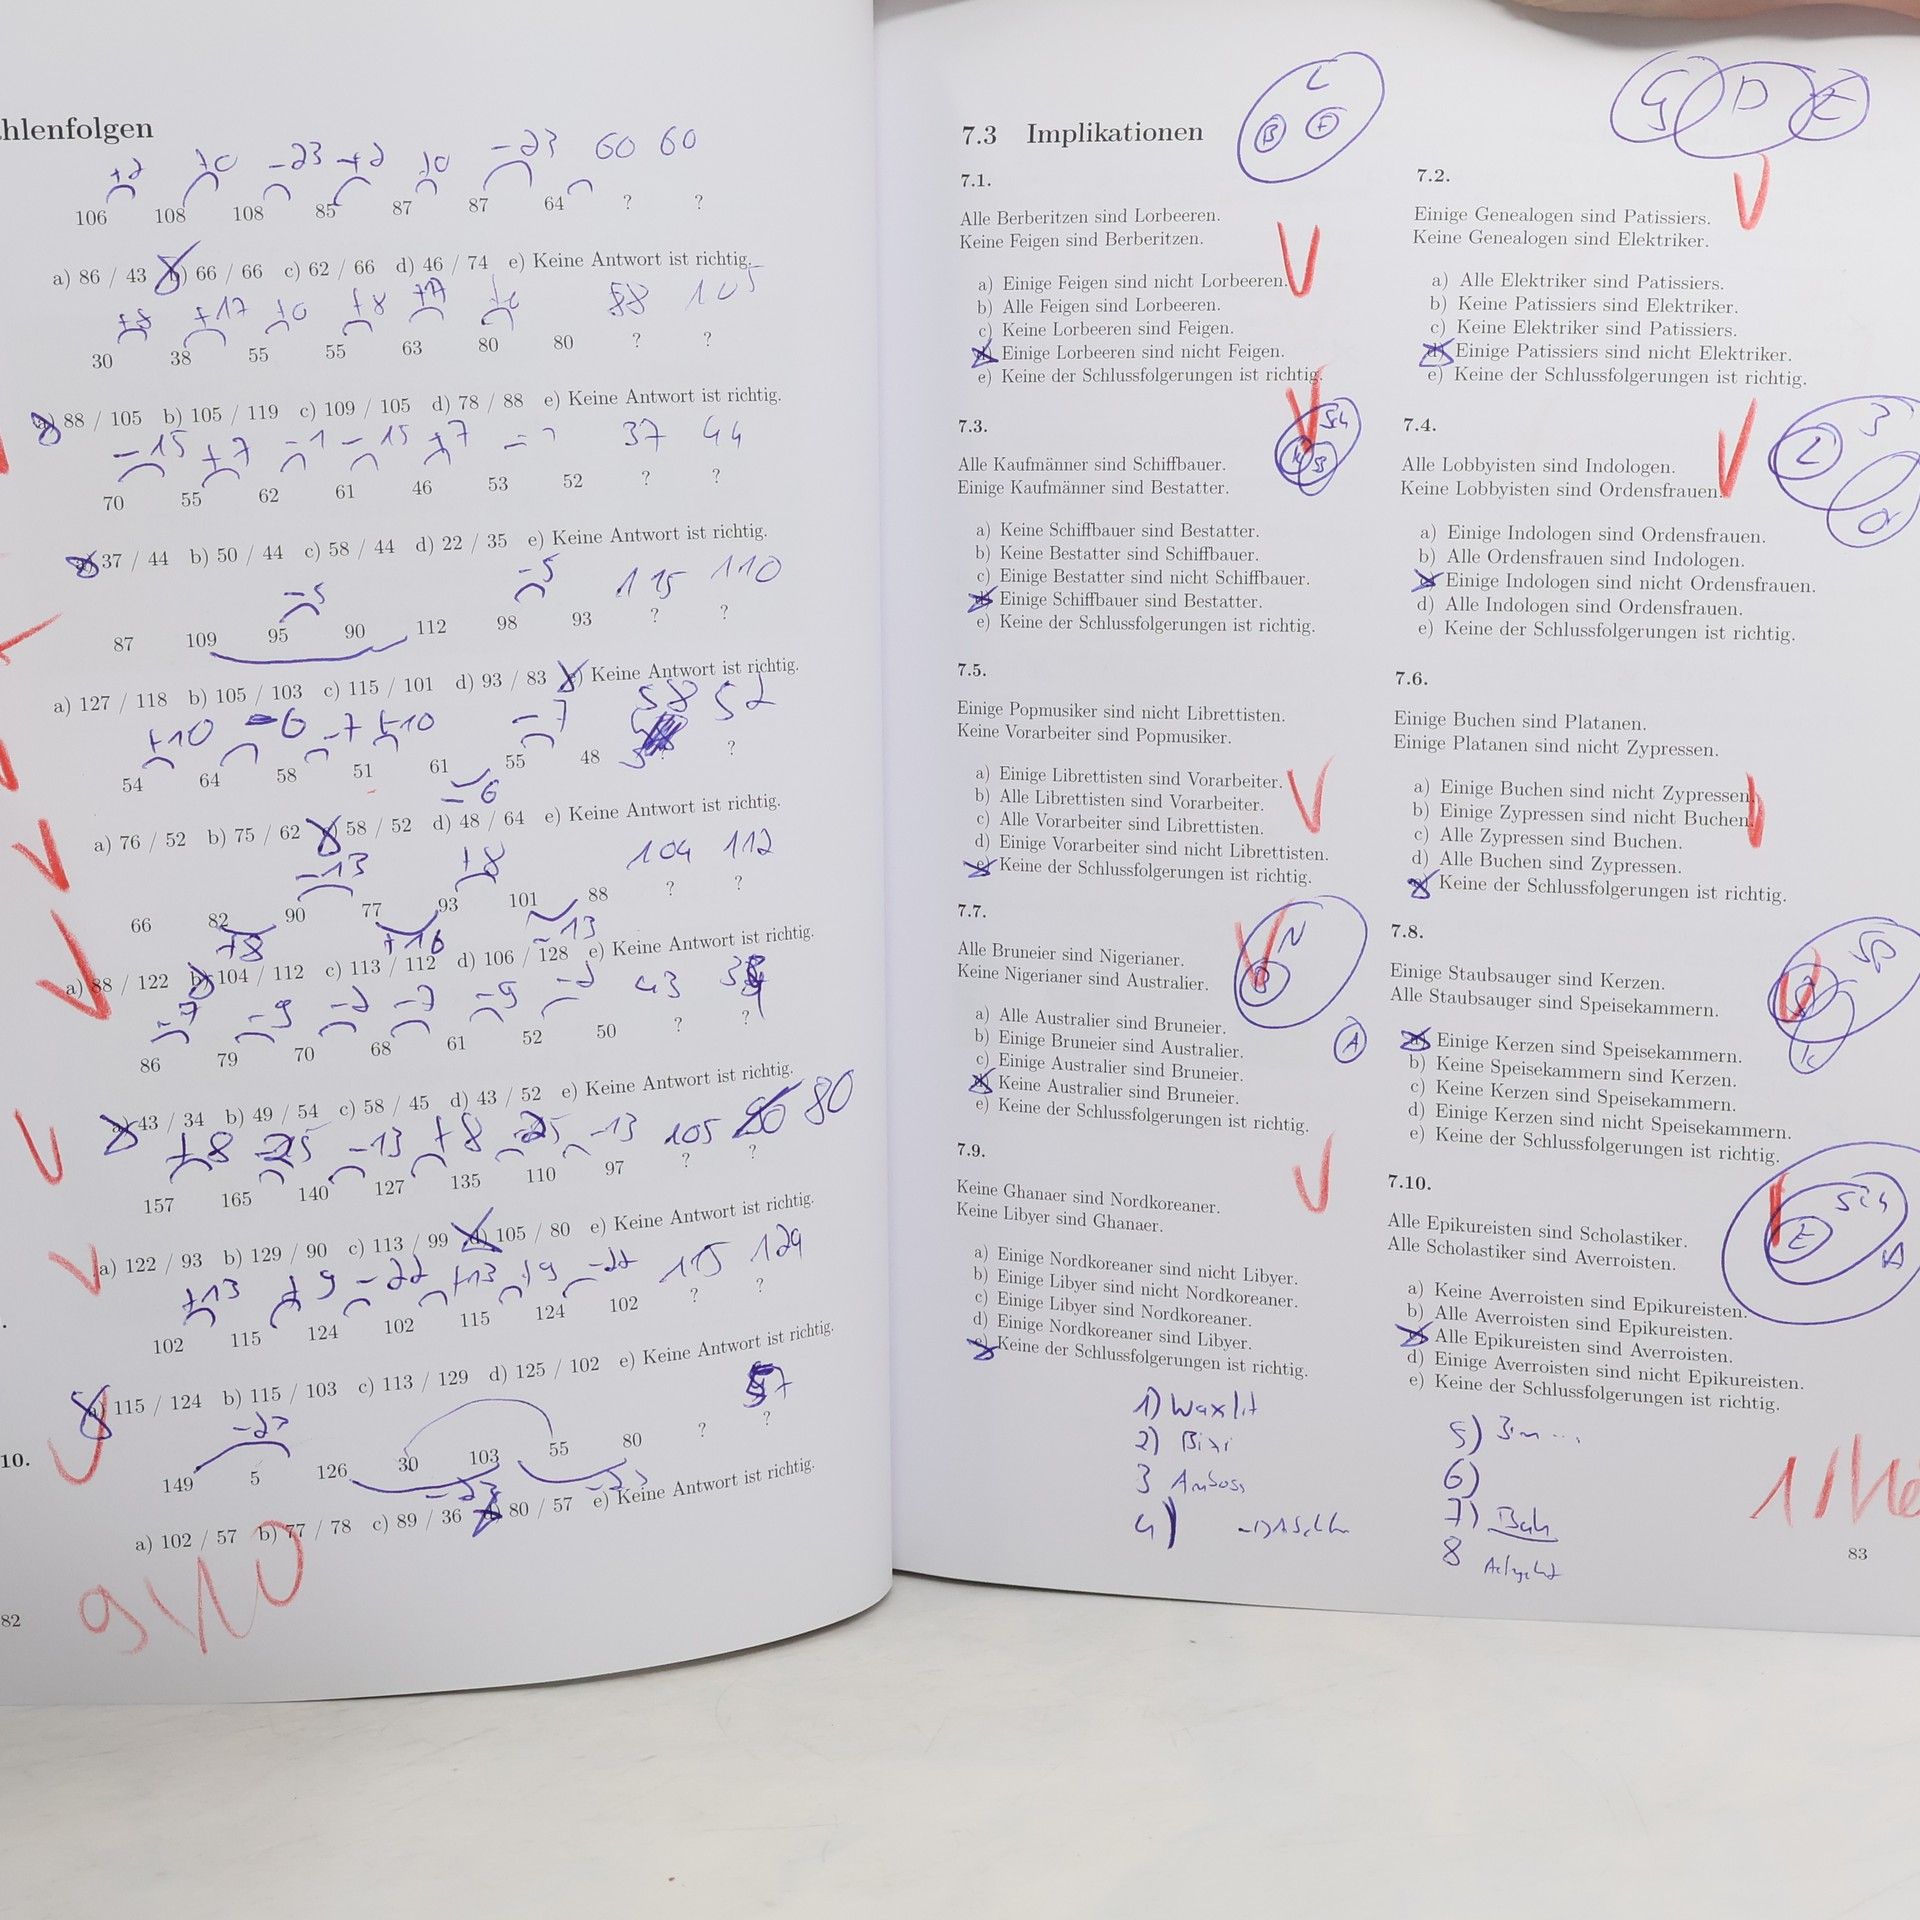 hlenfolgen
+2 +0 -23 +2 +0 -23 60 60
106 108 108 85 87 87 64 ? ?
a) 86 / 43 b) 66 / 66 c) 62 / 66 d) 46 / 74 e) Keine Antwort ist richtig.
+8 +17 +0 +8 +17 +0 88 105
30 38 55 55 63 80 80 ? ?
88 / 105 b) 105 / 119 c) 109 / 105 d) 78 / 88 e) Keine Antwort ist richtig.
-15 +7 -1 -15 +7 37 44
70 55 62 61 46 53 52 ? ?
37 / 44 b) 50 / 44 c) 58 / 44 d) 22 / 35 e) Keine Antwort ist richtig.
-5 -5 115 110
87 109 95 90 112 98 93 ? ?
a) 127 / 118 b) 105 / 103 c) 115 / 101 d) 93 / 83 e) Keine Antwort ist richtig.
+10 -6 -7 +10 -7 58 52
54 64 58 51 61 55 48 ?
-6
a) 76 / 52 b) 75 / 62 58 / 52 d) 48 / 64 e) Keine Antwort ist richtig.
-13 +8 104 112
66 82 90 77 93 101 88 ? ?
+8 +16 -13
a) 88 / 122 b) 104 / 112 c) 113 / 112 d) 106 / 128 e) Keine Antwort ist richtig.
-7 -9 -2 -7 -9 -2 43
86 79 70 68 61 52 50 ? ?
43 / 34 b) 49 / 54 c) 58 / 45 d) 43 / 52 e) Keine Antwort ist richtig.
+8 -25 -13 +8 -25 -13 105 80
157 165 140 127 135 110 97 ? ?
a) 122 / 93 b) 129 / 90 c) 113 / 99 105 / 80 e) Keine Antwort ist richtig.
+13 +9 -22 +13 +9 -22 115 124
102 115 124 102 115 124 102 ? ?
115 / 124 b) 115 / 103 c) 113 / 129 d) 125 / 102 e) Keine Antwort ist richtig.
-23 57
10. 149 5 126 30 103 55 80 ? ?
-23 -23
a) 102 / 57 b) 77 / 78 c) 89 / 36 80 / 57 e) Keine Antwort ist richtig.
9/10
82
7.3 Implikationen
L
B F
7.1.
Alle Berberitzen sind Lorbeeren.
Keine Feigen sind Berberitzen.
a) Einige Feigen sind nicht Lorbeeren.
b) Alle Feigen sind Lorbeeren.
c) Keine Lorbeeren sind Feigen.
Einige Lorbeeren sind nicht Feigen.
e) Keine der Schlussfolgerungen ist richtig.
G P E
7.2.
Einige Genealogen sind Patissiers.
Keine Genealogen sind Elektriker.
a) Alle Elektriker sind Patissiers.
b) Keine Patissiers sind Elektriker.
c) Keine Elektriker sind Patissiers.
d) Einige Patissiers sind nicht Elektriker.
e) Keine der Schlussfolgerungen ist richtig.
7.3.
Sch
K B
Alle Kaufmänner sind Schiffbauer.
Einige Kaufmänner sind Bestatter.
a) Keine Schiffbauer sind Bestatter.
b) Keine Bestatter sind Schiffbauer.
c) Einige Bestatter sind nicht Schiffbauer.
Einige Schiffbauer sind Bestatter.
e) Keine der Schlussfolgerungen ist richtig.
7.4.
L
Alle Lobbyisten sind Indologen.
Keine Lobbyisten sind Ordensfrauen.
a) Einige Indologen sind Ordensfrauen.
b) Alle Ordensfrauen sind Indologen.
Einige Indologen sind nicht Ordensfrauen.
d) Alle Indologen sind Ordensfrauen.
e) Keine der Schlussfolgerungen ist richtig.
7.5.
Einige Popmusiker sind nicht Librettisten.
Keine Vorarbeiter sind Popmusiker.
a) Einige Librettisten sind Vorarbeiter.
b) Alle Librettisten sind Vorarbeiter.
c) Alle Vorarbeiter sind Librettisten.
d) Einige Vorarbeiter sind nicht Librettisten.
Keine der Schlussfolgerungen ist richtig.
7.6.
Einige Buchen sind Platanen.
Einige Platanen sind nicht Zypressen.
a) Einige Buchen sind nicht Zypressen.
b) Einige Zypressen sind nicht Buchen.
c) Alle Zypressen sind Buchen.
d) Alle Buchen sind Zypressen.
Keine der Schlussfolgerungen ist richtig.
7.7.
N
B
A
Alle Bruneier sind Nigerianer.
Keine Nigerianer sind Australier.
a) Alle Australier sind Bruneier.
b) Einige Bruneier sind Australier.
c) Einige Australier sind Bruneier.
Keine Australier sind Bruneier.
e) Keine der Schlussfolgerungen ist richtig.
7.8.
Sp
K
Einige Staubsauger sind Kerzen.
Alle Staubsauger sind Speisekammern.
Einige Kerzen sind Speisekammern.
b) Keine Speisekammern sind Kerzen.
c) Keine Kerzen sind Speisekammern.
d) Einige Kerzen sind nicht Speisekammern.
e) Keine der Schlussfolgerungen ist richtig.
7.9.
Keine Ghanaer sind Nordkoreaner.
Keine Libyer sind Ghanaer.
a) Einige Nordkoreaner sind nicht Libyer.
b) Einige Libyer sind nicht Nordkoreaner.
c) Einige Libyer sind Nordkoreaner.
d) Einige Nordkoreaner sind Libyer.
Keine der Schlussfolgerungen ist richtig.
7.10.
Sch
E
A
Alle Epikureisten sind Scholastiker.
Alle Scholastiker sind Averroisten.
a) Keine Averroisten sind Epikureisten.
b) Alle Averroisten sind Epikureisten.
Alle Epikureisten sind Averroisten.
d) Einige Averroisten sind nicht Epikureisten.
e) Keine der Schlussfolgerungen ist richtig.
1) Waxlit
2) Bixi
3 Amboss
4)
5)
6)
7) Bah
8
83